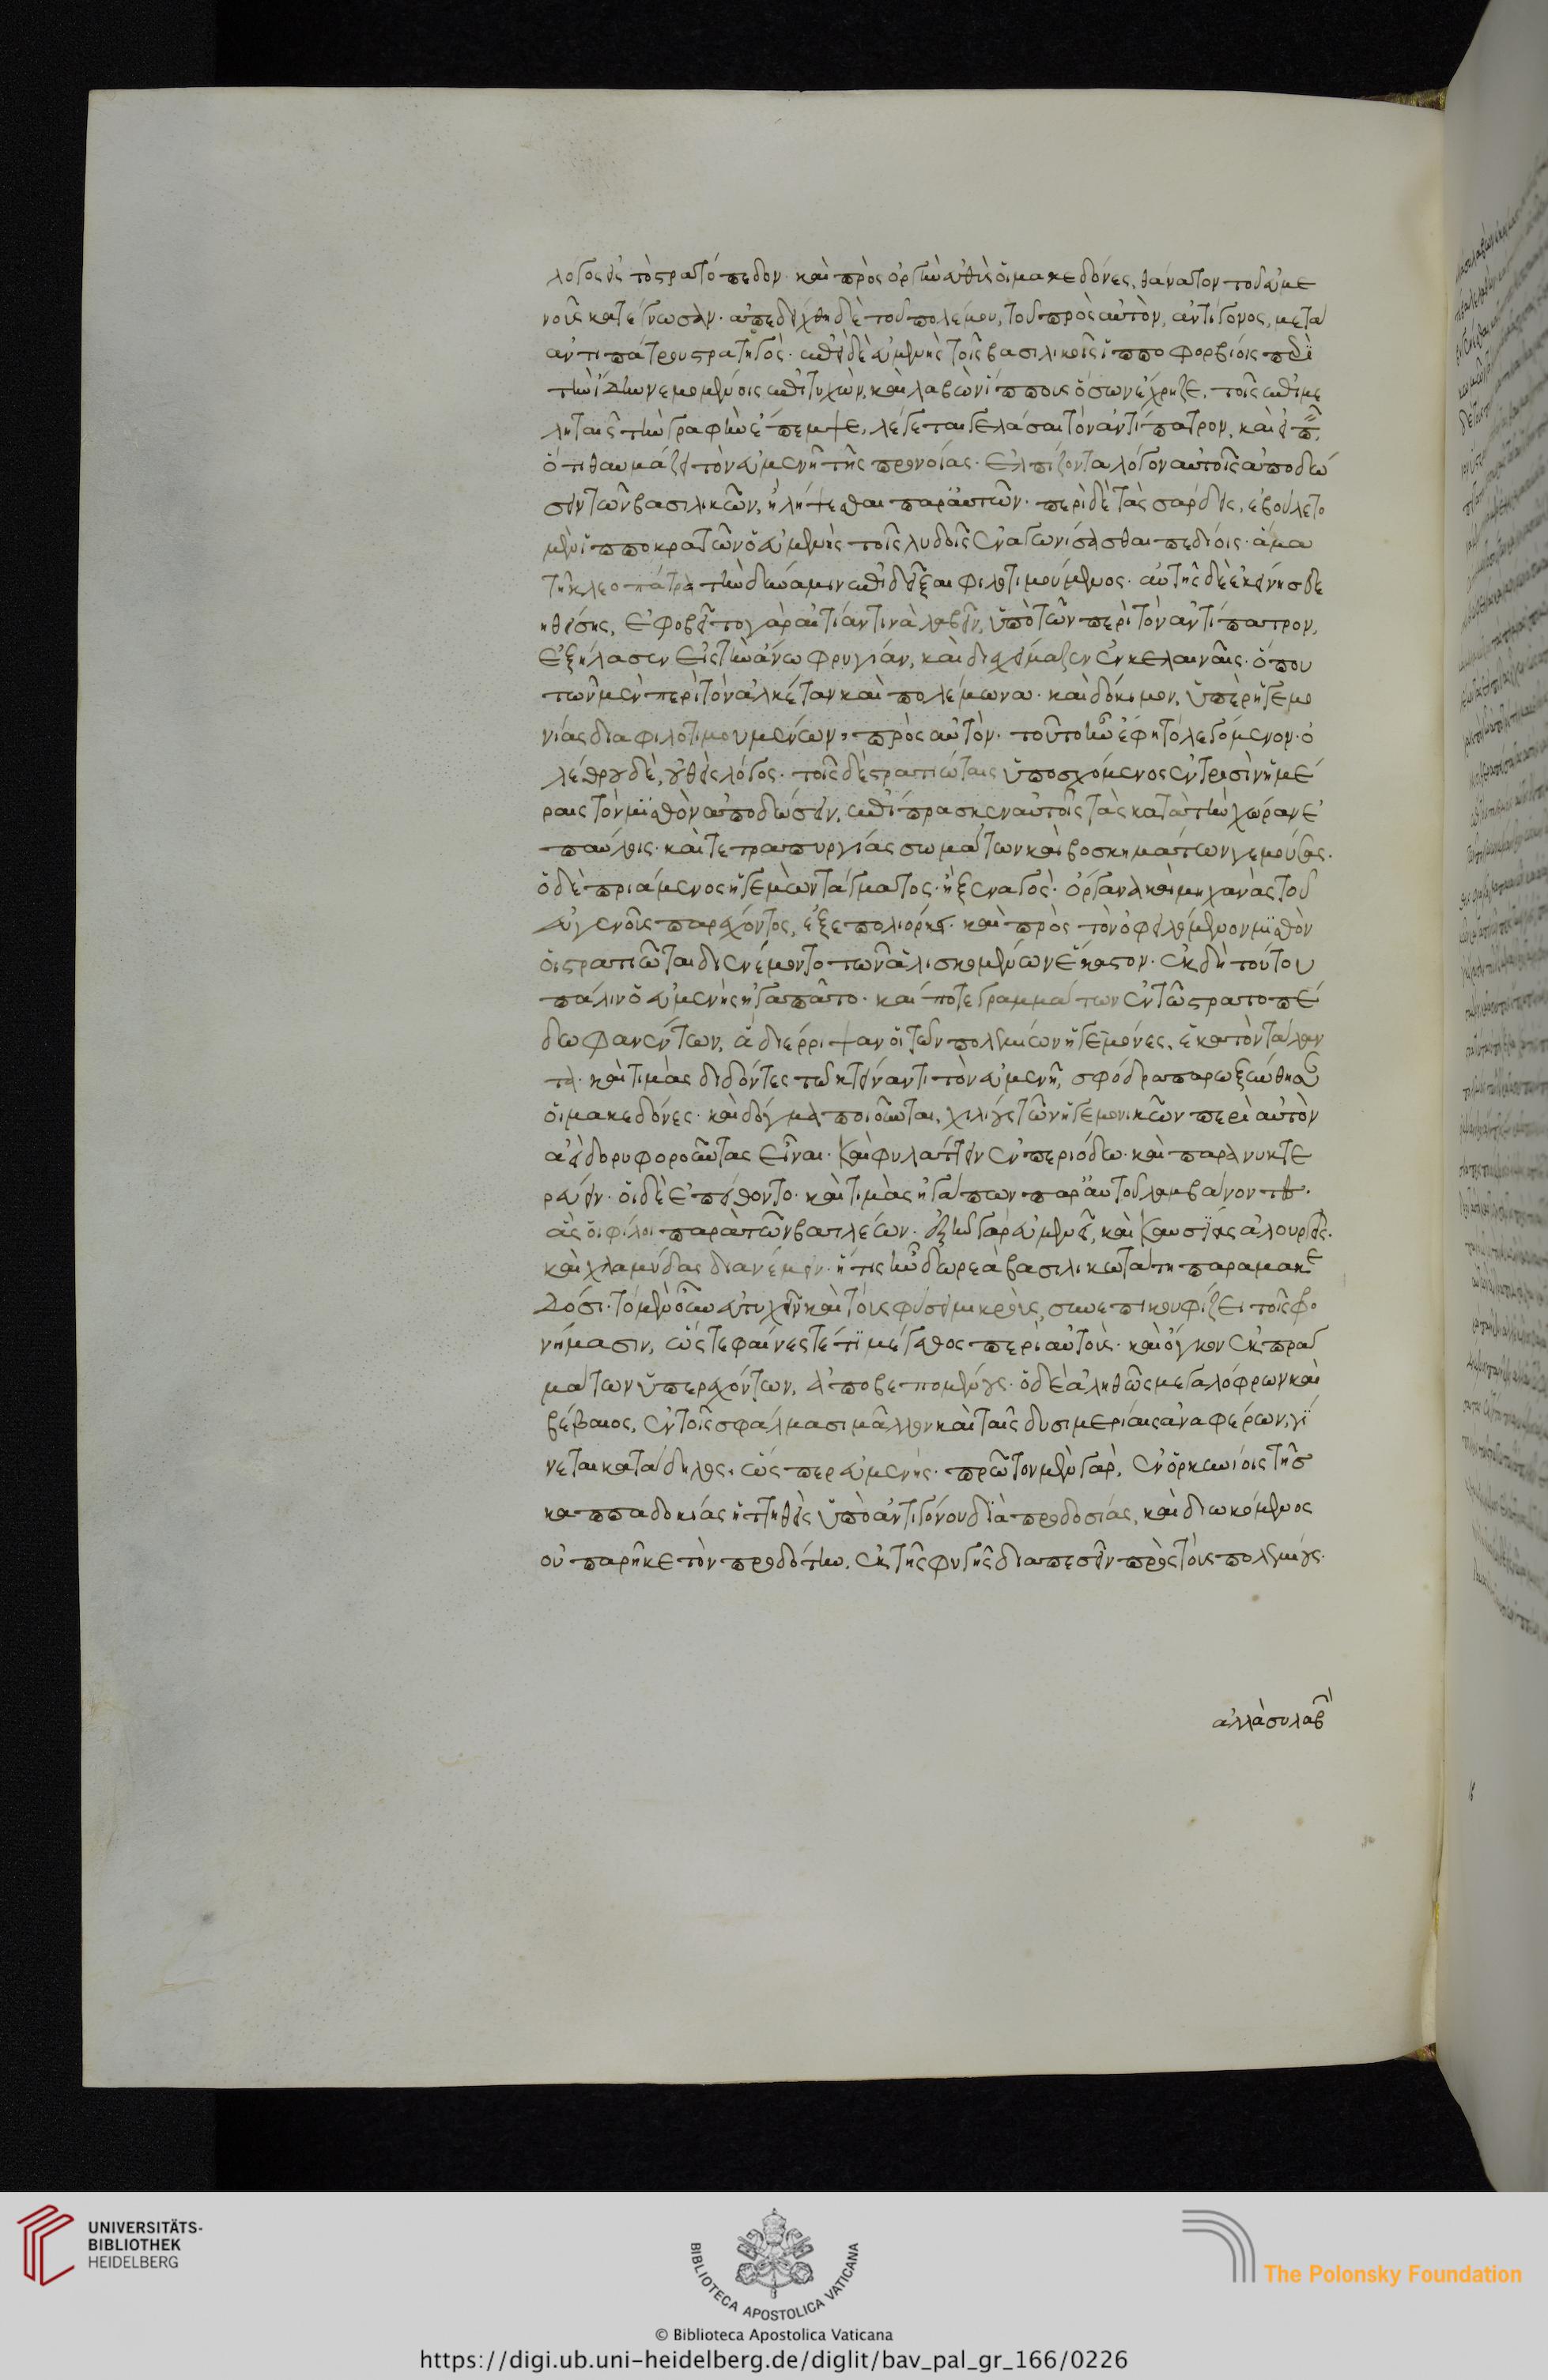 λόγος εἰς τὸ στρατόπεδον. καὶ πρὸς ὀργὴν εὐθὺς οἱ μακεδόνες, θάνατον τοῦ εὐμε
νοῦς κατέγνωσαν. ἀπεδείχθη δὲ τοῦ πολέμου, τοῦ πρὸς αὐτὸν, ἀντίγονος, μετὰ
ἀντιπάτρου στρατηγὸς. ἐπεὶ δὲ εὐμενὴς τοῖς βασιλικοῖς ἱπποφορβίοις περὶ
τὴν ἴδην νεμομένοις ἐπιτυχὼν, καὶ λαβὼν ἵππους ὅσων ἔχρηζε, τοῖς ἐπιμε
ληταῖς τὴν γραφὴν ἔπεμψε, λέγεται γελάσαι τὸν ἀντίπατρον, καὶ εἰπεῖν
ὅτι θαυμάζει τὸν εὐμενῆ τῆς προνοίας. ἐλπίζοντα λόγον αὐτοῖς ἀποδώ
σειν τῶν βασιλικῶν, ἢ λήψεσθαι παρ' αὐτῶν. περὶ δὲ τὰς σάρδεις, ἐβούλετο
μὲν ἱπποκρατῶν ὁ εὐμενὴς τοῖς λυδοῖς ἐναγωνίσασθαι πεδίοις. ἅμα
τῇ κλεοπάτρᾳ τὴν δύναμιν ἐπιδεῖξαι φιλοτιμούμενος. αὐτῆς δὲ ἐκείνης δε
ηθείσης, ἐφοβεῖτο γὰρ αἰτίαν τινὰ λαβεῖν, ὑπὸ τῶν περὶ τὸν ἀντίπατρον,
ἐξήλασεν εἰς τὴν ἄνω φρυγίαν, καὶ διεχείμαζεν ἐν κελαιναῖς. ὅπου
τῶν μὲν περὶ τὸν ἀλκέταν καὶ πολέμωνα. καὶ δόκιμον, ὑπὲρ ἡγεμο
νίας διαφιλοτιμουμένων πρὸς αὐτὸν. τοῦτο ἦν ἔφη τὸ λεγόμενον. ὀ
λέθρου δὲ, οὐθεὶς λόγος. τοῖς δὲ στρατιώταις ὑποσχόμενος ἐν τρισὶν ἡμέ
ραις τὸν μισθὸν ἀποδώσειν, ἐπίπρασκεν αὐτοῖς τὰς κατὰ τὴν χώραν ἐ
παύλεις. καὶ τετραπυργίας σωμάτων καὶ βοσκημάτων γεμούσας.
ὁ δὲ πριάμενος ἡγεμὼν τάγματος. ἢ ξεναγὸς. ὄργανα καὶ μηχανὰς τοῦ
εὐμενοῦς παρέχοντος, ἐξεπολιόρκει. καὶ πρὸς τὸν ὀφειλόμενον μισθὸν
οἱ στρατιῶται διενέμοντο τῶν ἁλισκομένων ἕκαστον. ἐκ δὴ τούτου
πάλιν ὁ εὐμενὴς ἠγαπᾶτο. καί ποτε γραμμάτων ἐν τῷ στρατοπέ
δῳ φανέντων, ἃ διέρριψαν οἱ τῶν πολεμίων ἡγεμόνες, ἑκατὸν τάλαν
τα. καὶ τιμὰς διδόντες τῷ κτείναντι τὸν εὐμενῆ, σφόδρα παρωξύνθησαν
οἱ μακεδόνες. καὶ δόγμα ποιοῦνται, χιλίους τῶν ἡγεμονικῶν περὶ αὐτὸν
ἀεὶ δορυφοροῦντας εἶναι. καὶ φυλάττειν ἐν περιόδῳ. καὶ παρανυκτε
ρεύειν. οἱ δὲ ἐπείθοντο. καὶ τιμὰς ἠγάπων παρ' αὐτοῦ λαμβάνοντες.
ἃς οἱ φίλοι παρὰ τῶν βασιλέων. ἐξῆν γὰρ εὐμενεῖ, καὶ καυσίας ἁλουργεῖς.
καὶ χλαμύδας διανέμειν. ἥτις ἦν δωρεὰ βασιλικωτάτη παρὰ μακε
δόσι. τὸ μὲν οὖν εὐτυχεῖν καὶ τοὺς φύσει μικροὺς, συνεπικουφίζει τοῖς φρο
νήμασιν, ὥστε φαίνεσθαί τι μέγεθος περὶ αὐτοὺς. καὶ ὄγκον ἐκ πραγ
μάτων ὑπερεχόντων, ἀποβλεπομένους. ὁ δὲ ἀληθῶς μεγαλόφρων καὶ
βέβαιος, ἐν τοῖς σφάλμασι μᾶλλον καὶ ταῖς δυσημερίαις ἀναφέρων, γί
νεται κατάδηλος. ὥσπερ εὐμενὴς. πρῶτον μὲν γὰρ, ἐν ὀρκυνίοις τῆς
καππαδοκίας ἡττηθεὶς ὑπὸ ἀντιγόνου διὰ προδοσίας, καὶ διωκόμενος
οὐ παρῆκε τὸν προδότην. ἐκ τῆς φυγῆς διαπεσεῖν πρὸς τοὺς πολεμίους.
ἀλλὰ συλαβὼν
UNIVERSITÄTS-
BIBLIOTHEK
HEIDELBERG
BIBLIOTECA APOSTOLICA VATICANA
The Polonsky Foundation
© Biblioteca Apostolica Vaticana
https://digi.ub.uni-heidelberg.de/diglit/bav_pal_gr_166/0226